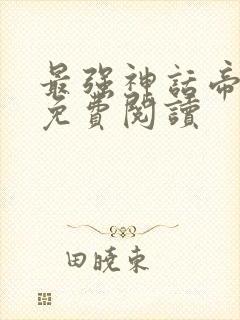 最強神話帝
免費閱讀
田曉東